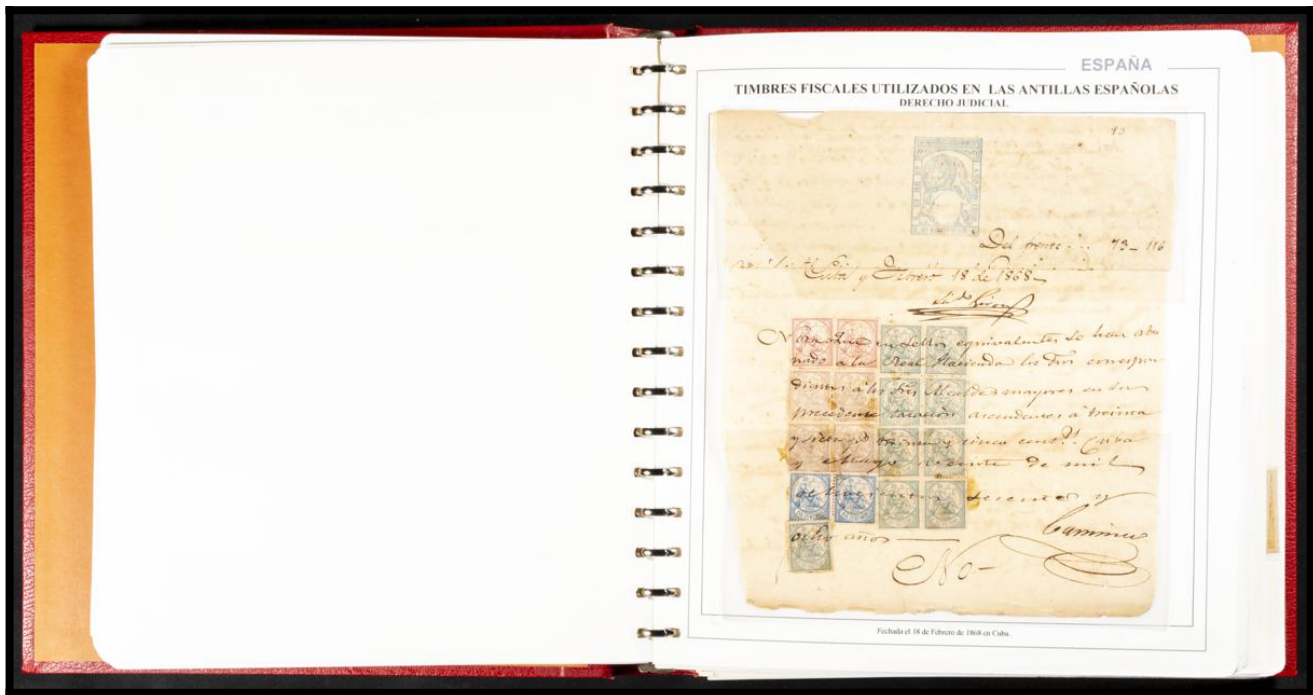 ESPAÑA
TIMBRES FISCALES UTILIZADOS EN LAS ANTILLAS ESPAÑOLAS
DERECHO JUDICIAL
93
Del frente . . . 73_116
Cuba y Febrero 18 de 1868_
Nota que en sellos equivalentes se han abo
nado a la Real Hacienda los dros correspon
dientes á los Sres Alcaldes mayores en la
precedente tasacion ascendentes á treinta
y siete treinta y cinco cent.s Cuba
y Mayo veinte de mil
ochocientos sesenta y
ocho años
No_
Fechada el 18 de Febrero de 1868 en Cuba.